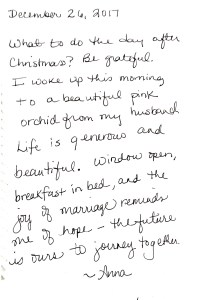 December 26, 2017
What to do the day after
Christmas? Be grateful.
I woke up this morning
to a beautiful pink
orchid from my husband
Life is generous and
beautiful. Window open,
breakfast in bed, and the
joy of marriage reminds
me of hope - the future
is ours to journey together
~ Anna